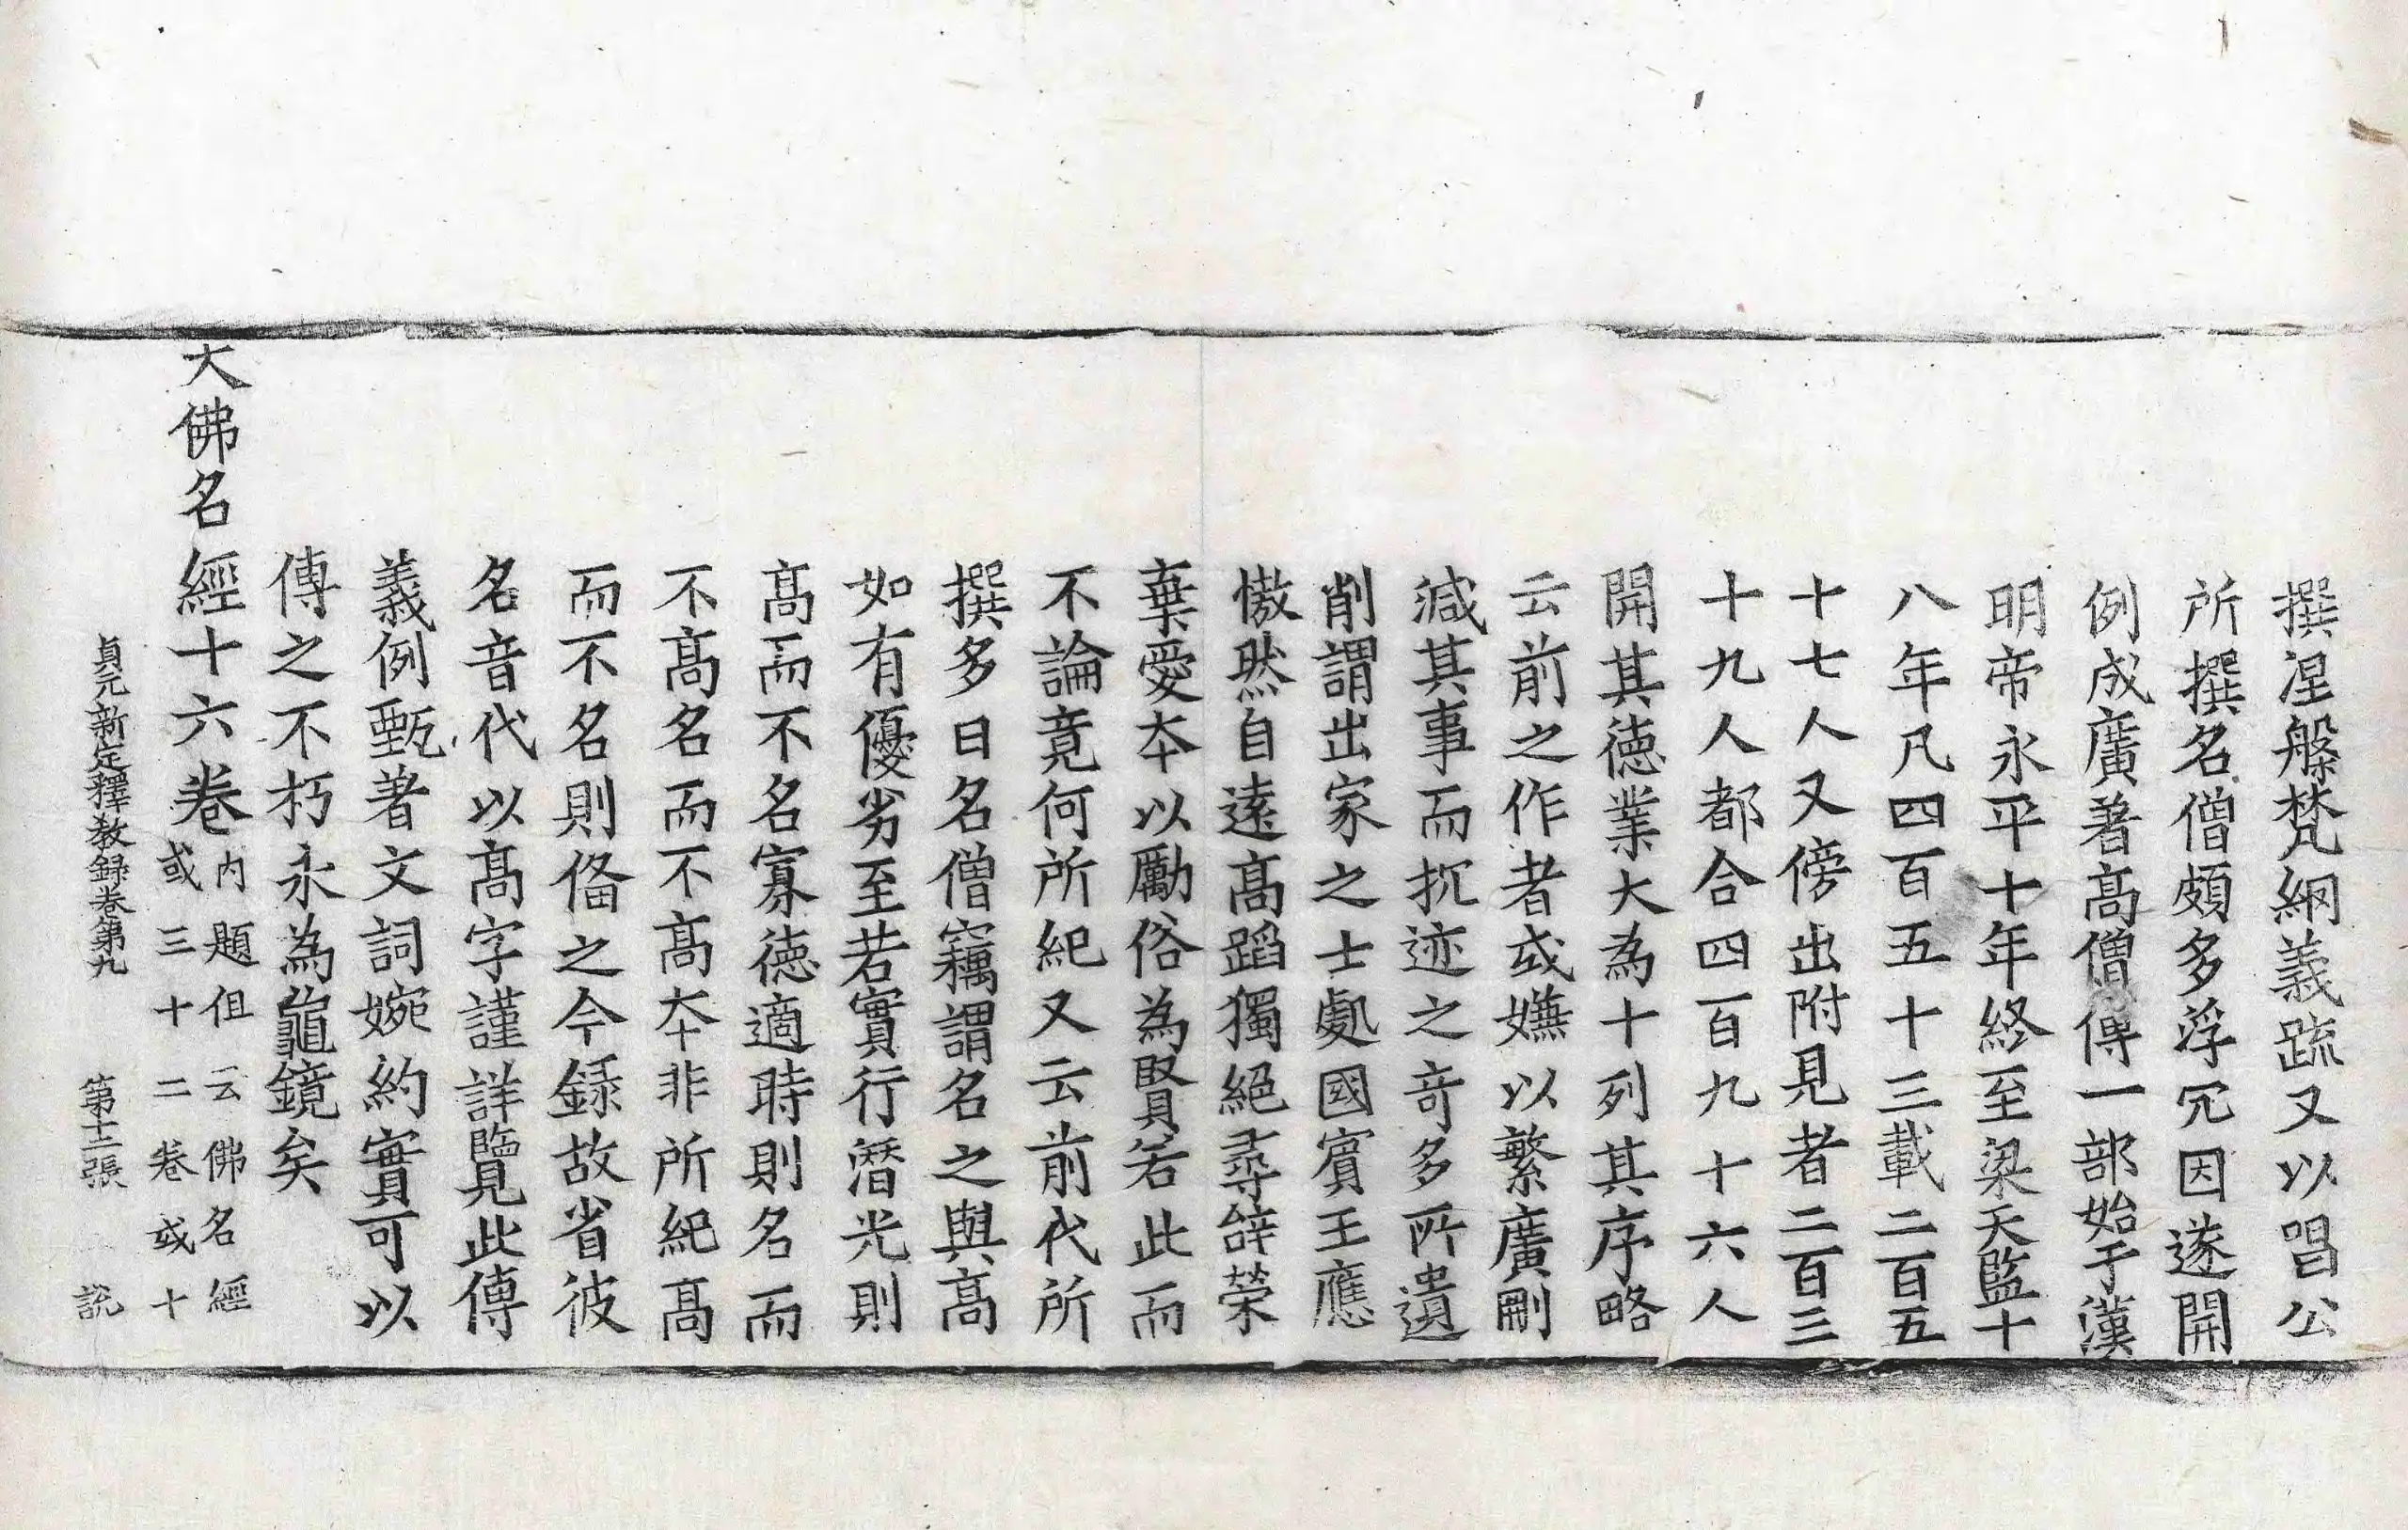 撰涅槃梵綱義疏又以唱公
所撰名僧頗多浮冗因遂開
例成廣著髙僧傳一部始于漢
明帝永平十年終至梁天監十
八年凡四百五十三載二百五
十七人又傍出附見者二百三
十九人都合四百九十六人
開其徳業大為十列其序略
云前之作者或嫌以繁廣刪
減其事而抗迹之竒多所遺
削謂出家之士處國賓王應
慠然自遠髙蹈獨絕尋辝榮
棄愛夲以勵俗為賢若此而
不論竟何所紀又云前代所
撰多曰名僧竊謂名之與髙
如有優劣至若實行潛光則
髙而不名寡徳適時則名而
不髙名而不髙夲非所紀髙
而不名則俻之今録故省彼
名音代以髙字謹詳覽此傳
義例甄著文詞婉約實可以
傳之不朽永為龜鏡矣
大佛名經十六卷內題但云佛名經
或三十二卷或十
貞元新定釋教録卷第九 第十二張 說